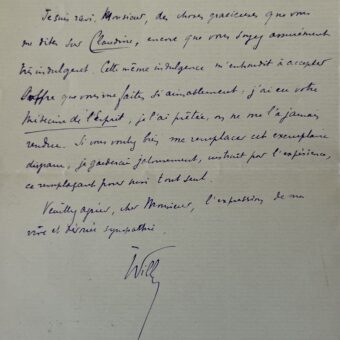 Je suis ravi, Monsieur, des choses gracieuses que vous
me dites sur Claudine, encore que vous soyez assurément
très indulgent. Cette même indulgence m'enhardit à accepter
l'offre que vous me faites, si aimablement : j'ai eu votre
Médecine de l'Esprit, je l'ai prêtée, on ne me l'a jamais
rendue. Si vous voulez bien me remplacer cet exemplaire
disparu, je garderai jalousement, instruit par l'expérience,
ce remplaçant pour moi tout seul.
Veuillez agréer, cher Monsieur, l'expression de ma
vive et dévouée sympathie.
Willy